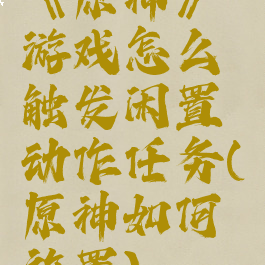 《原神》
游戏怎么
触发闲置
动作任务(
原神如何
放置)